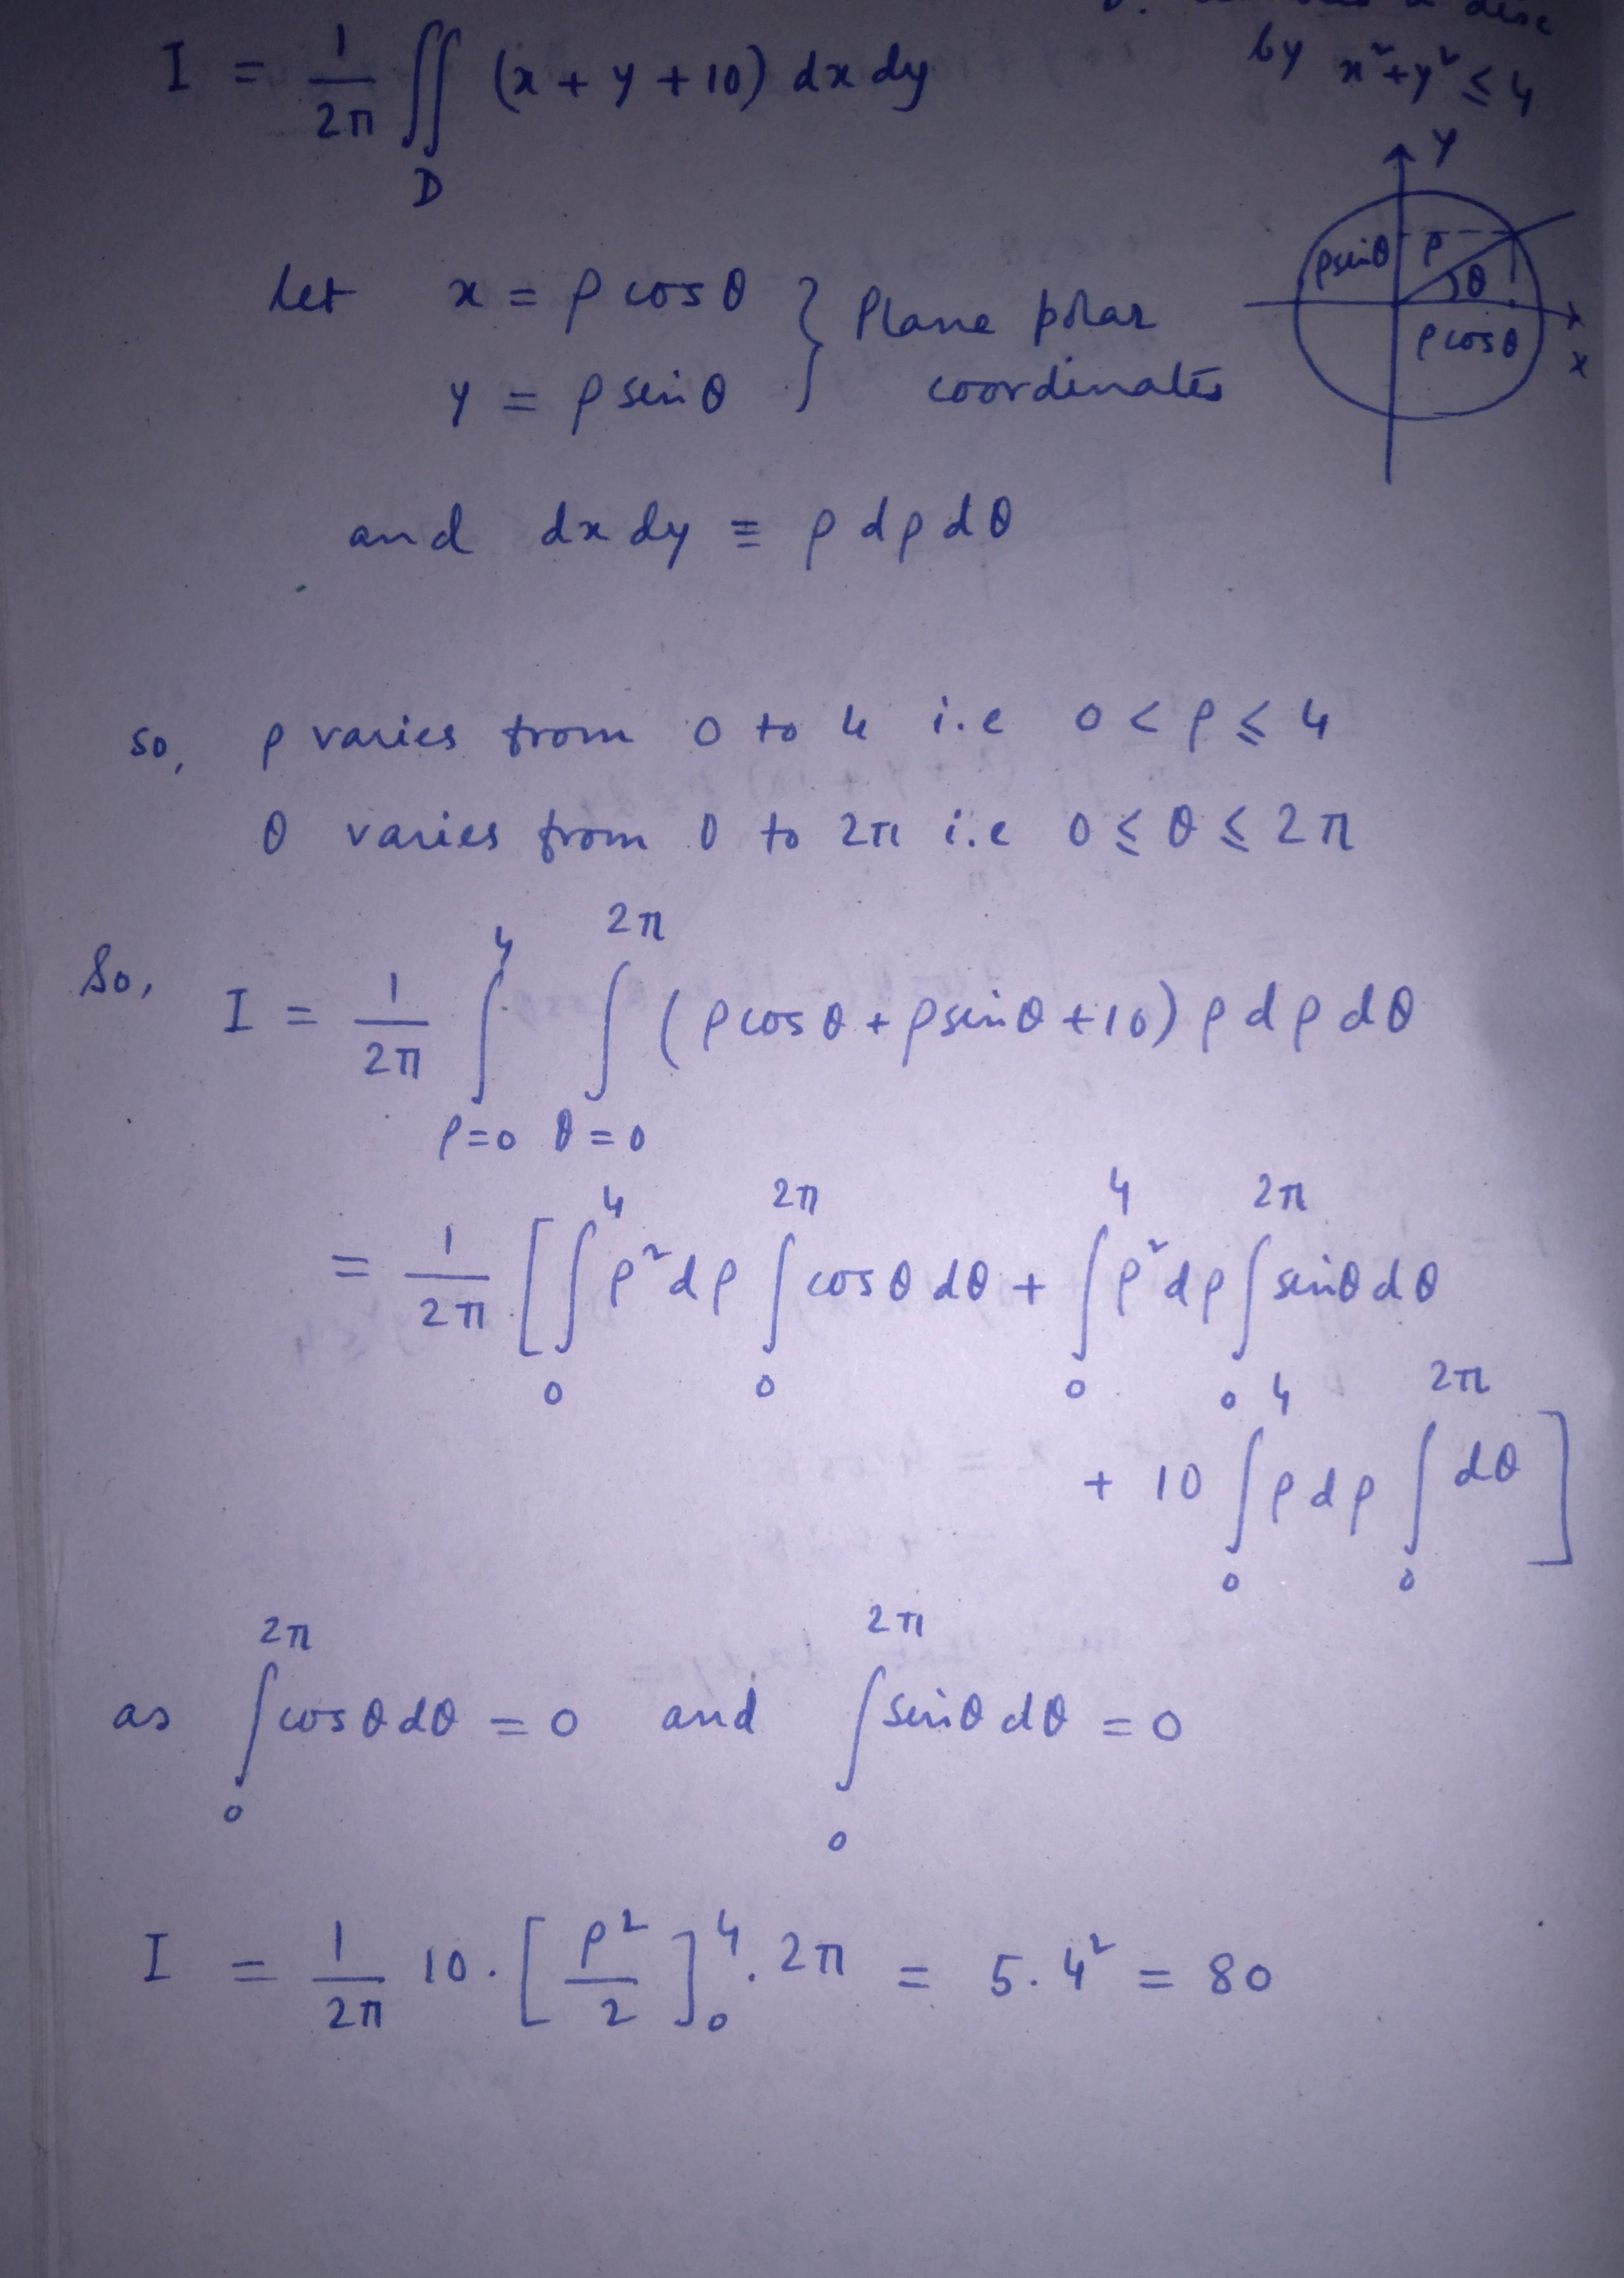 disc
I = 1/2π ∬_D (x + y + 10) dx dy
by x²+y² ≤ 4
Y
ρsinθ ρ θ
ρcosθ x
Let x = ρ cosθ
y = ρ sinθ } Plane polar coordinates
and dx dy ≡ ρ dρ dθ
so, ρ varies from 0 to 4 i.e 0 < ρ ≤ 4
θ varies from 0 to 2π i.e 0 ≤ θ ≤ 2π
So, I = 1/2π ∫_{ρ=0}^{4} ∫_{θ=0}^{2π} (ρcosθ + ρsinθ + 10) ρ dρ dθ
= 1/2π [ ∫_0^4 ρ² dρ ∫_0^{2π} cosθ dθ + ∫_0^4 ρ² dρ ∫_0^{2π} sinθ dθ
+ 10 ∫_0^4 ρ dρ ∫_0^{2π} dθ ]
as ∫_0^{2π} cosθ dθ = 0 and ∫_0^{2π} sinθ dθ = 0
I = 1/2π 10. [ρ²/2]_0^4 . 2π = 5. 4² = 80